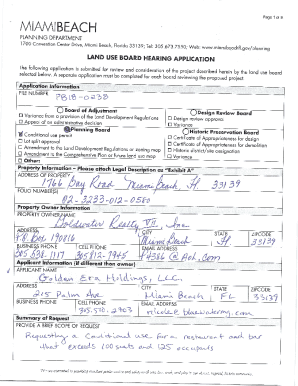 Page 1 of 8
MIAMIBEACH
PLANNING DEPARTMENT
1700 Convention Center Drive, Miami Beach, Florida 33139; Tel: 305.673.7550; Web: www.miamibeachfl.gov/planning
LAND USE BOARD HEARING APPLICATION
The following application is submitted for review and consideration of the project described herein by the land use board
selected below. A separate application must be completed for each board reviewing the proposed project.
Application Information
FILE NUMBER
PB18-0238
Board of Adjustment
Design Review Board
Variance from a provision of the Land Development Regulations
Design review approval
Appeal of an administrative decision
Variance
Planning Board
Historic Preservation Board
Conditional use permit
Certificate of Appropriateness for design
Lot split approval
Certificate of Appropriateness for demolition
Amendment to the Land Development Regulations or zoning map
Historic district/site designation
Amendment to the Comprehensive Plan or future land use map
Variance
Other:
Property Information – Please attach Legal Description as "Exhibit A"
ADDRESS OF PROPERTY
1766 Bay Road Miami Beach, Fl 33139
FOLIO NUMBER(S)
02-3233-012-0580
Property Owner Information
PROPERTY OWNER NAME
Goldwater Realty VII, Inc.
ADDRESS CITY STATE ZIPCODE
P.O. Box 190816 Miami Beach Fl 33139
BUSINESS PHONE CELL PHONE EMAIL ADDRESS
@aol.com
Applicant Information (if different than owner)
APPLICANT NAME
Golden Era Holdings, LLC.
ADDRESS CITY STATE ZIPCODE
215 Palm Ave Miami Beach FL 33139
BUSINESS PHONE CELL PHONE EMAIL ADDRESS
Summary of Request
PROVIDE A BRIEF SCOPE OF REQUEST
Requesting a Conditional use for a restaurant and bar
that exceeds 100 seats and 125 occupants